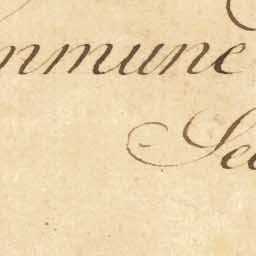 mmune
Se